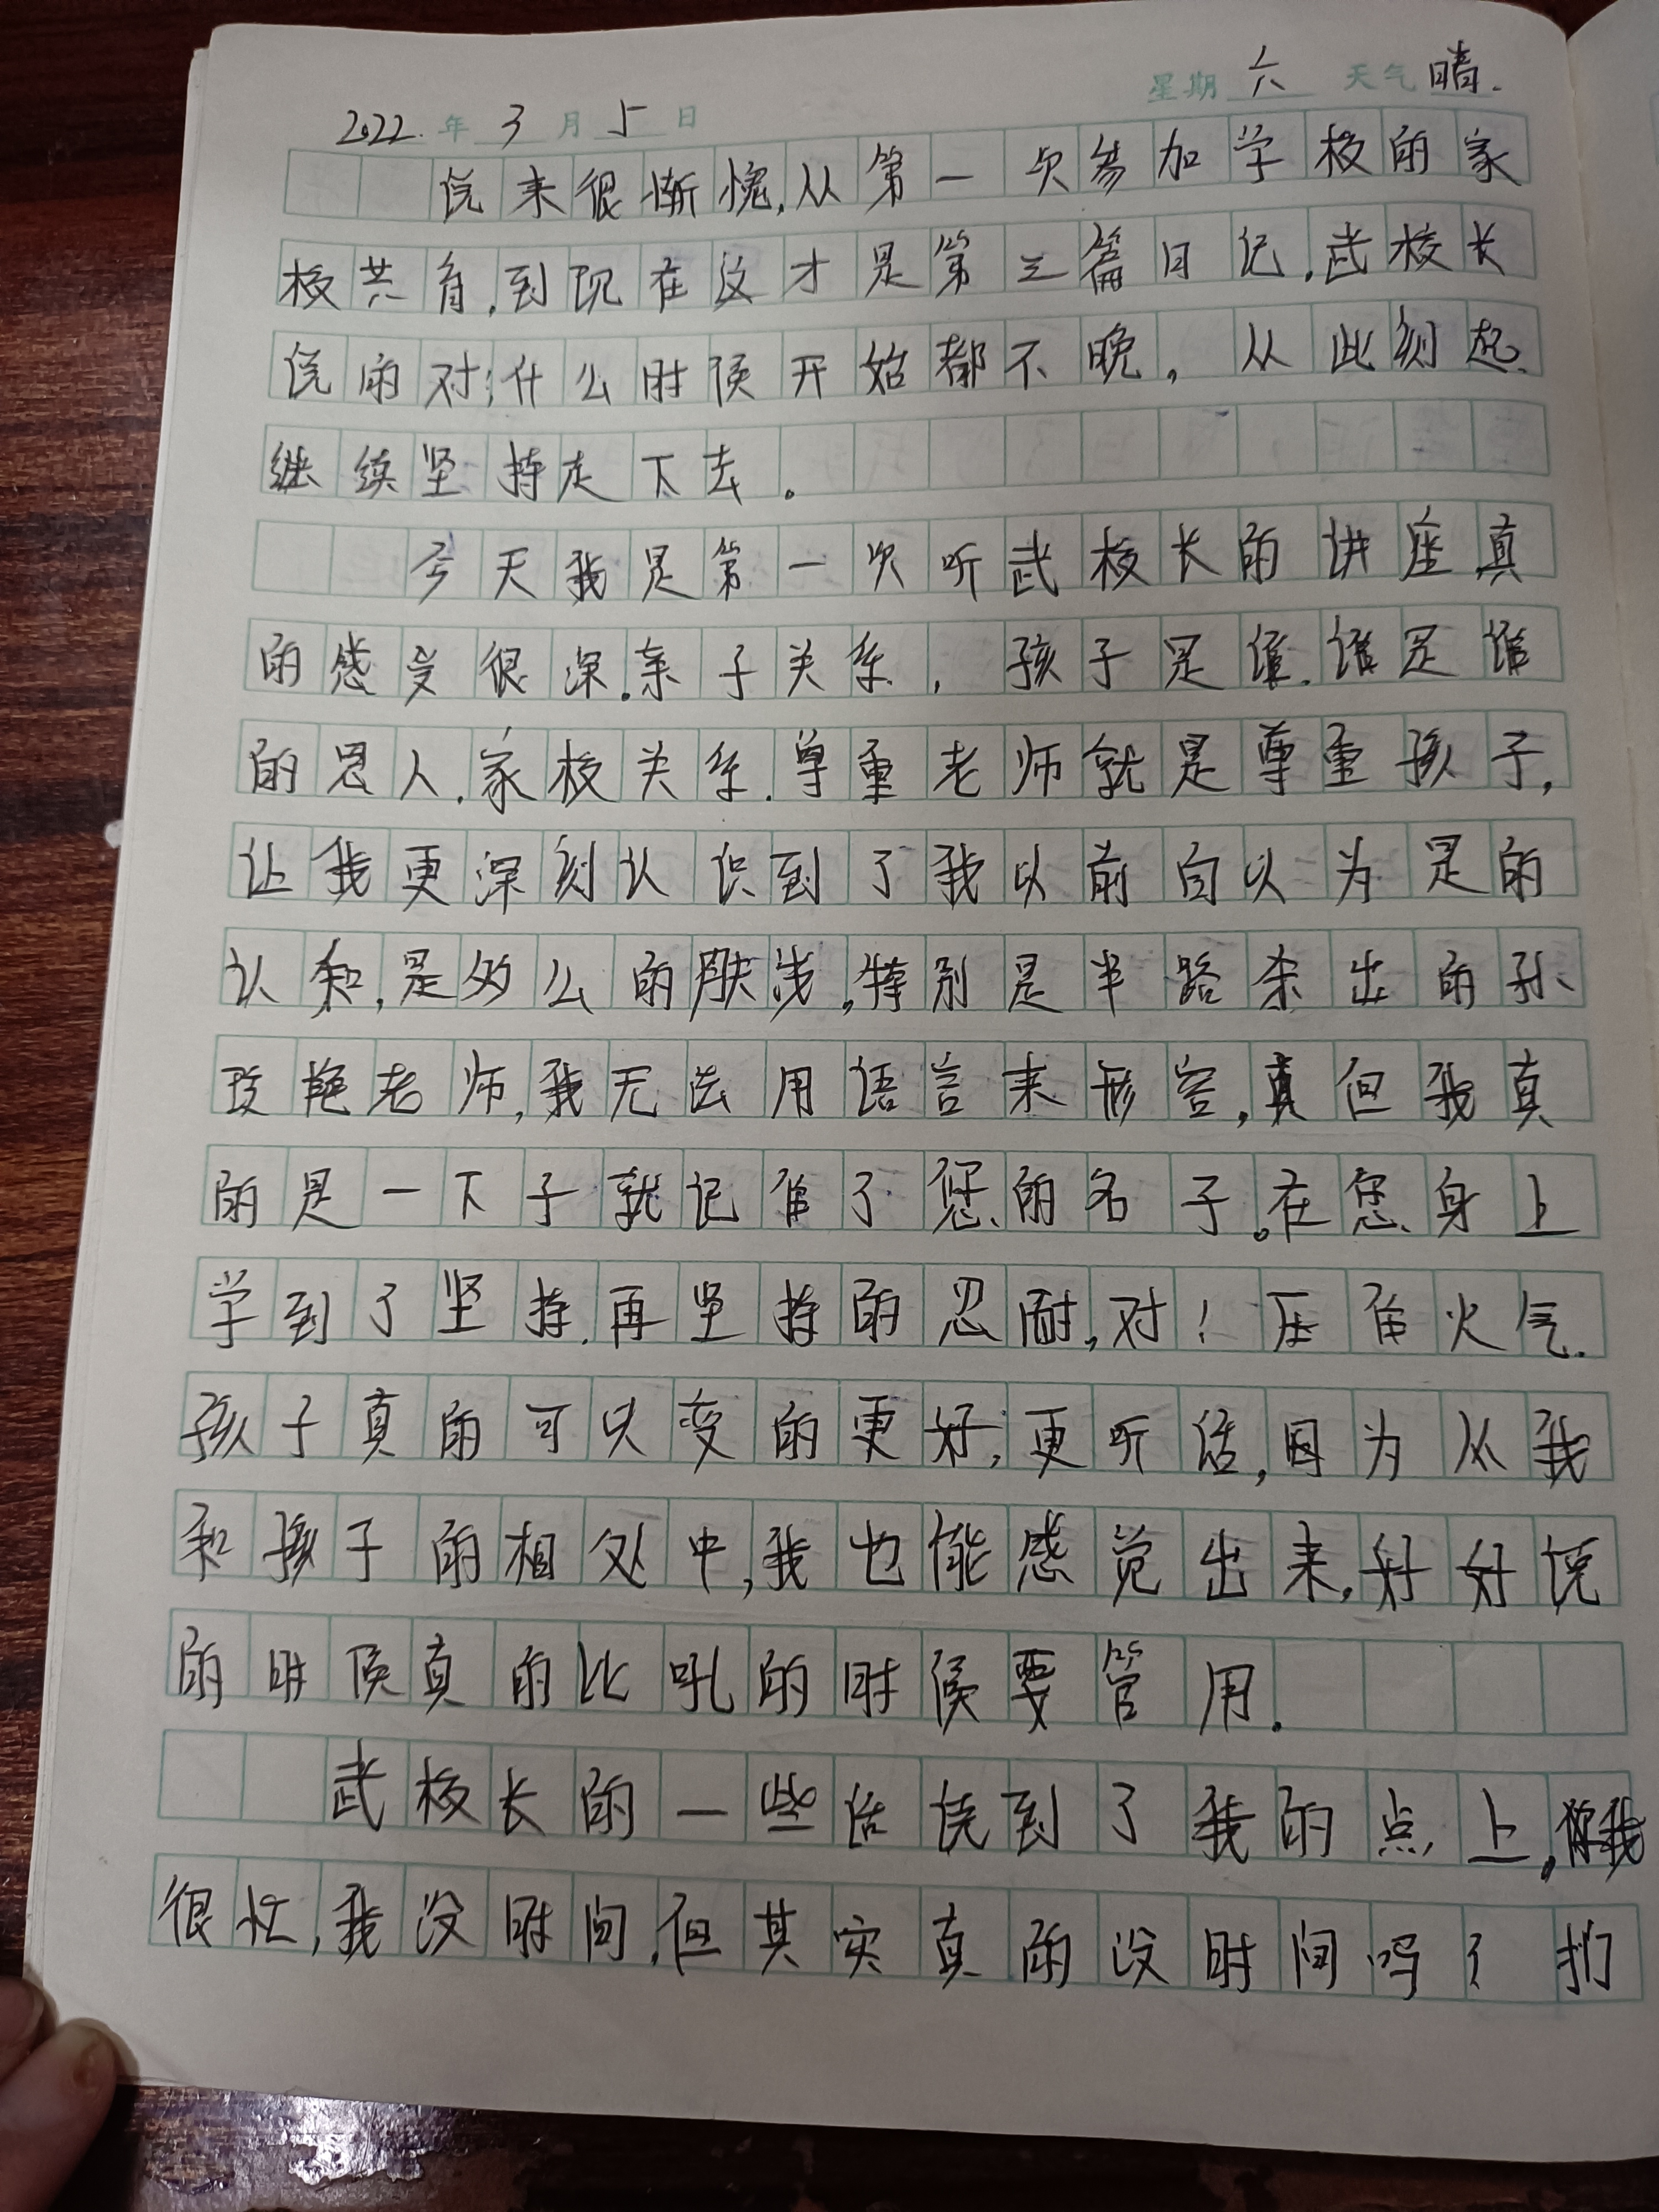 星期六 天气晴.
2022.年3月5日
说来很惭愧,从第一次参加学校的家
校共育,到现在这才是第三篇日记,武校长
说的对:什么时候开始都不晚,从此刻起.
继续坚持走下去。
今天我是第一次听武校长的讲座真
的感受很深.亲子关系,孩子是谁.谁是谁
的恩人.家校关系.尊重老师就是尊重孩子,
让我更深刻认识到了我以前自以为是的
认知,是多么的肤浅,特别是半路杀出的孙
玫艳老师,我无法用语言来形容,真但我真
的是一下子就记住了您的名子。在您身上
学到了坚持.再坚持的忍耐,对!压住火气.
孩子真的可以变的更好,更听话,因为从我
和孩子的相处中,我也能感觉出来,好好说
的时候真的比吼的时候要管用.
武校长的一些话说到了我的点上,我
很忙,我没时间,但其实真的没时间吗?扪